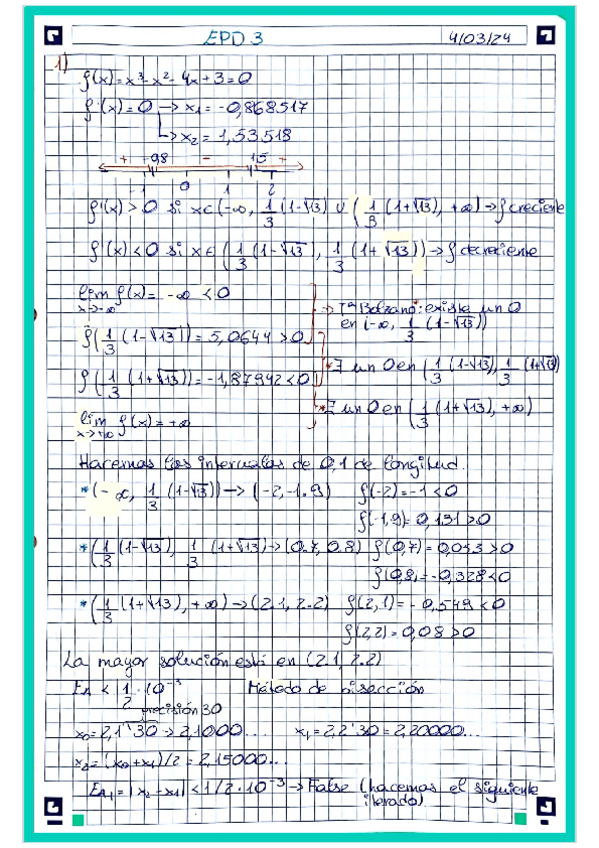 EPD 3
4/03/24
1)
f(x)=x³-x²-4x+3=0
f'(x)=0 → x₁=-0,868517
→ x₂=1,53518
+ -0,8 - 1,5 +
-1 0 1 2
f'(x)>0 si x∈(-∞, 1/3 (1-√13) ∪ (1/3 (1+√13), +∞) → f creciente
f'(x)<0 si x∈(1/3 (1-√13), 1/3 (1+√13)) → f decreciente
lim x→-∞ f(x)=-∞ <0
→ Tª Bolzano: existe un 0
en (-∞, 1/3 (1-√13))
f(1/3 (1-√13))=5,0644>0
*∃ un 0 en (1/3 (1-√13), 1/3 (1+√13)
f(1/3 (1+√13))=-1,87942<0
*∃ un 0 en (1/3 (1+√13), +∞)
lim x→+∞ f(x)=+∞
Hacemos los intervalos de 0,1 de longitud.
*(-∞, 1/3 (1-√13)) → (-2,-1.9) f(-2)=-1<0
f(-1,9)=0,131>0
*(1/3 (1-√13), 1/3 (1+√13) → (0.7, 0.8) f(0,7)=0,053>0
f(0,8)=-0,328<0
*(1/3 (1+√13), +∞) → (2.1, 2.2) f(2,1)=-0,549<0
f(2,2)=0,08>0
La mayor solución está en (2.1, 2.2)
< 1/2 · 10⁻³ Método de bisección
precisión 30
x₀=2,1`30 → 2,1000... x₁=2,2`30=2,20000...
x₂=(x₀+x₁)/2=2,15000...
EA₁=|x₂-x₁|<1/2·10⁻³ → False (hacemos el siguiente
iterado)